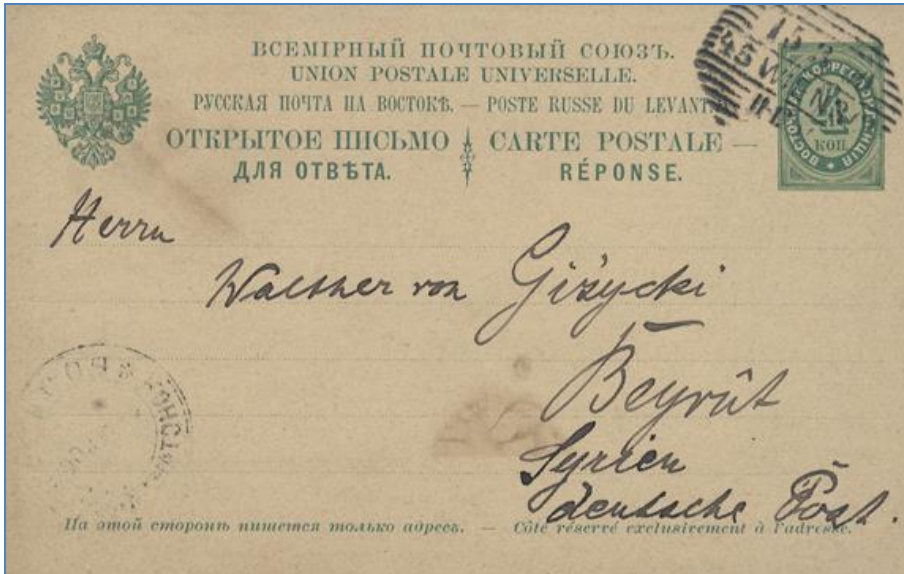 ВСЕМІРНЫЙ ПОЧТОВЫЙ СОЮЗЪ.
UNION POSTALE UNIVERSELLE.
РУССКАЯ ПОЧТА НА ВОСТОКѢ. — POSTE RUSSE DU LEVANT
ОТКРЫТОЕ ПИСЬМО CARTE POSTALE —
ДЛЯ ОТВѢТА. RÉPONSE.
ВОСТОЧНАЯ КОРРЕСПОНДЕНЦІЯ
КОП.
Herrn
Walther von Giżycki
Beyrût
Syrien
deutsche Post.
На этой сторонѣ пишется только адресъ. — Côté réservé exclusivement à l'adresse.